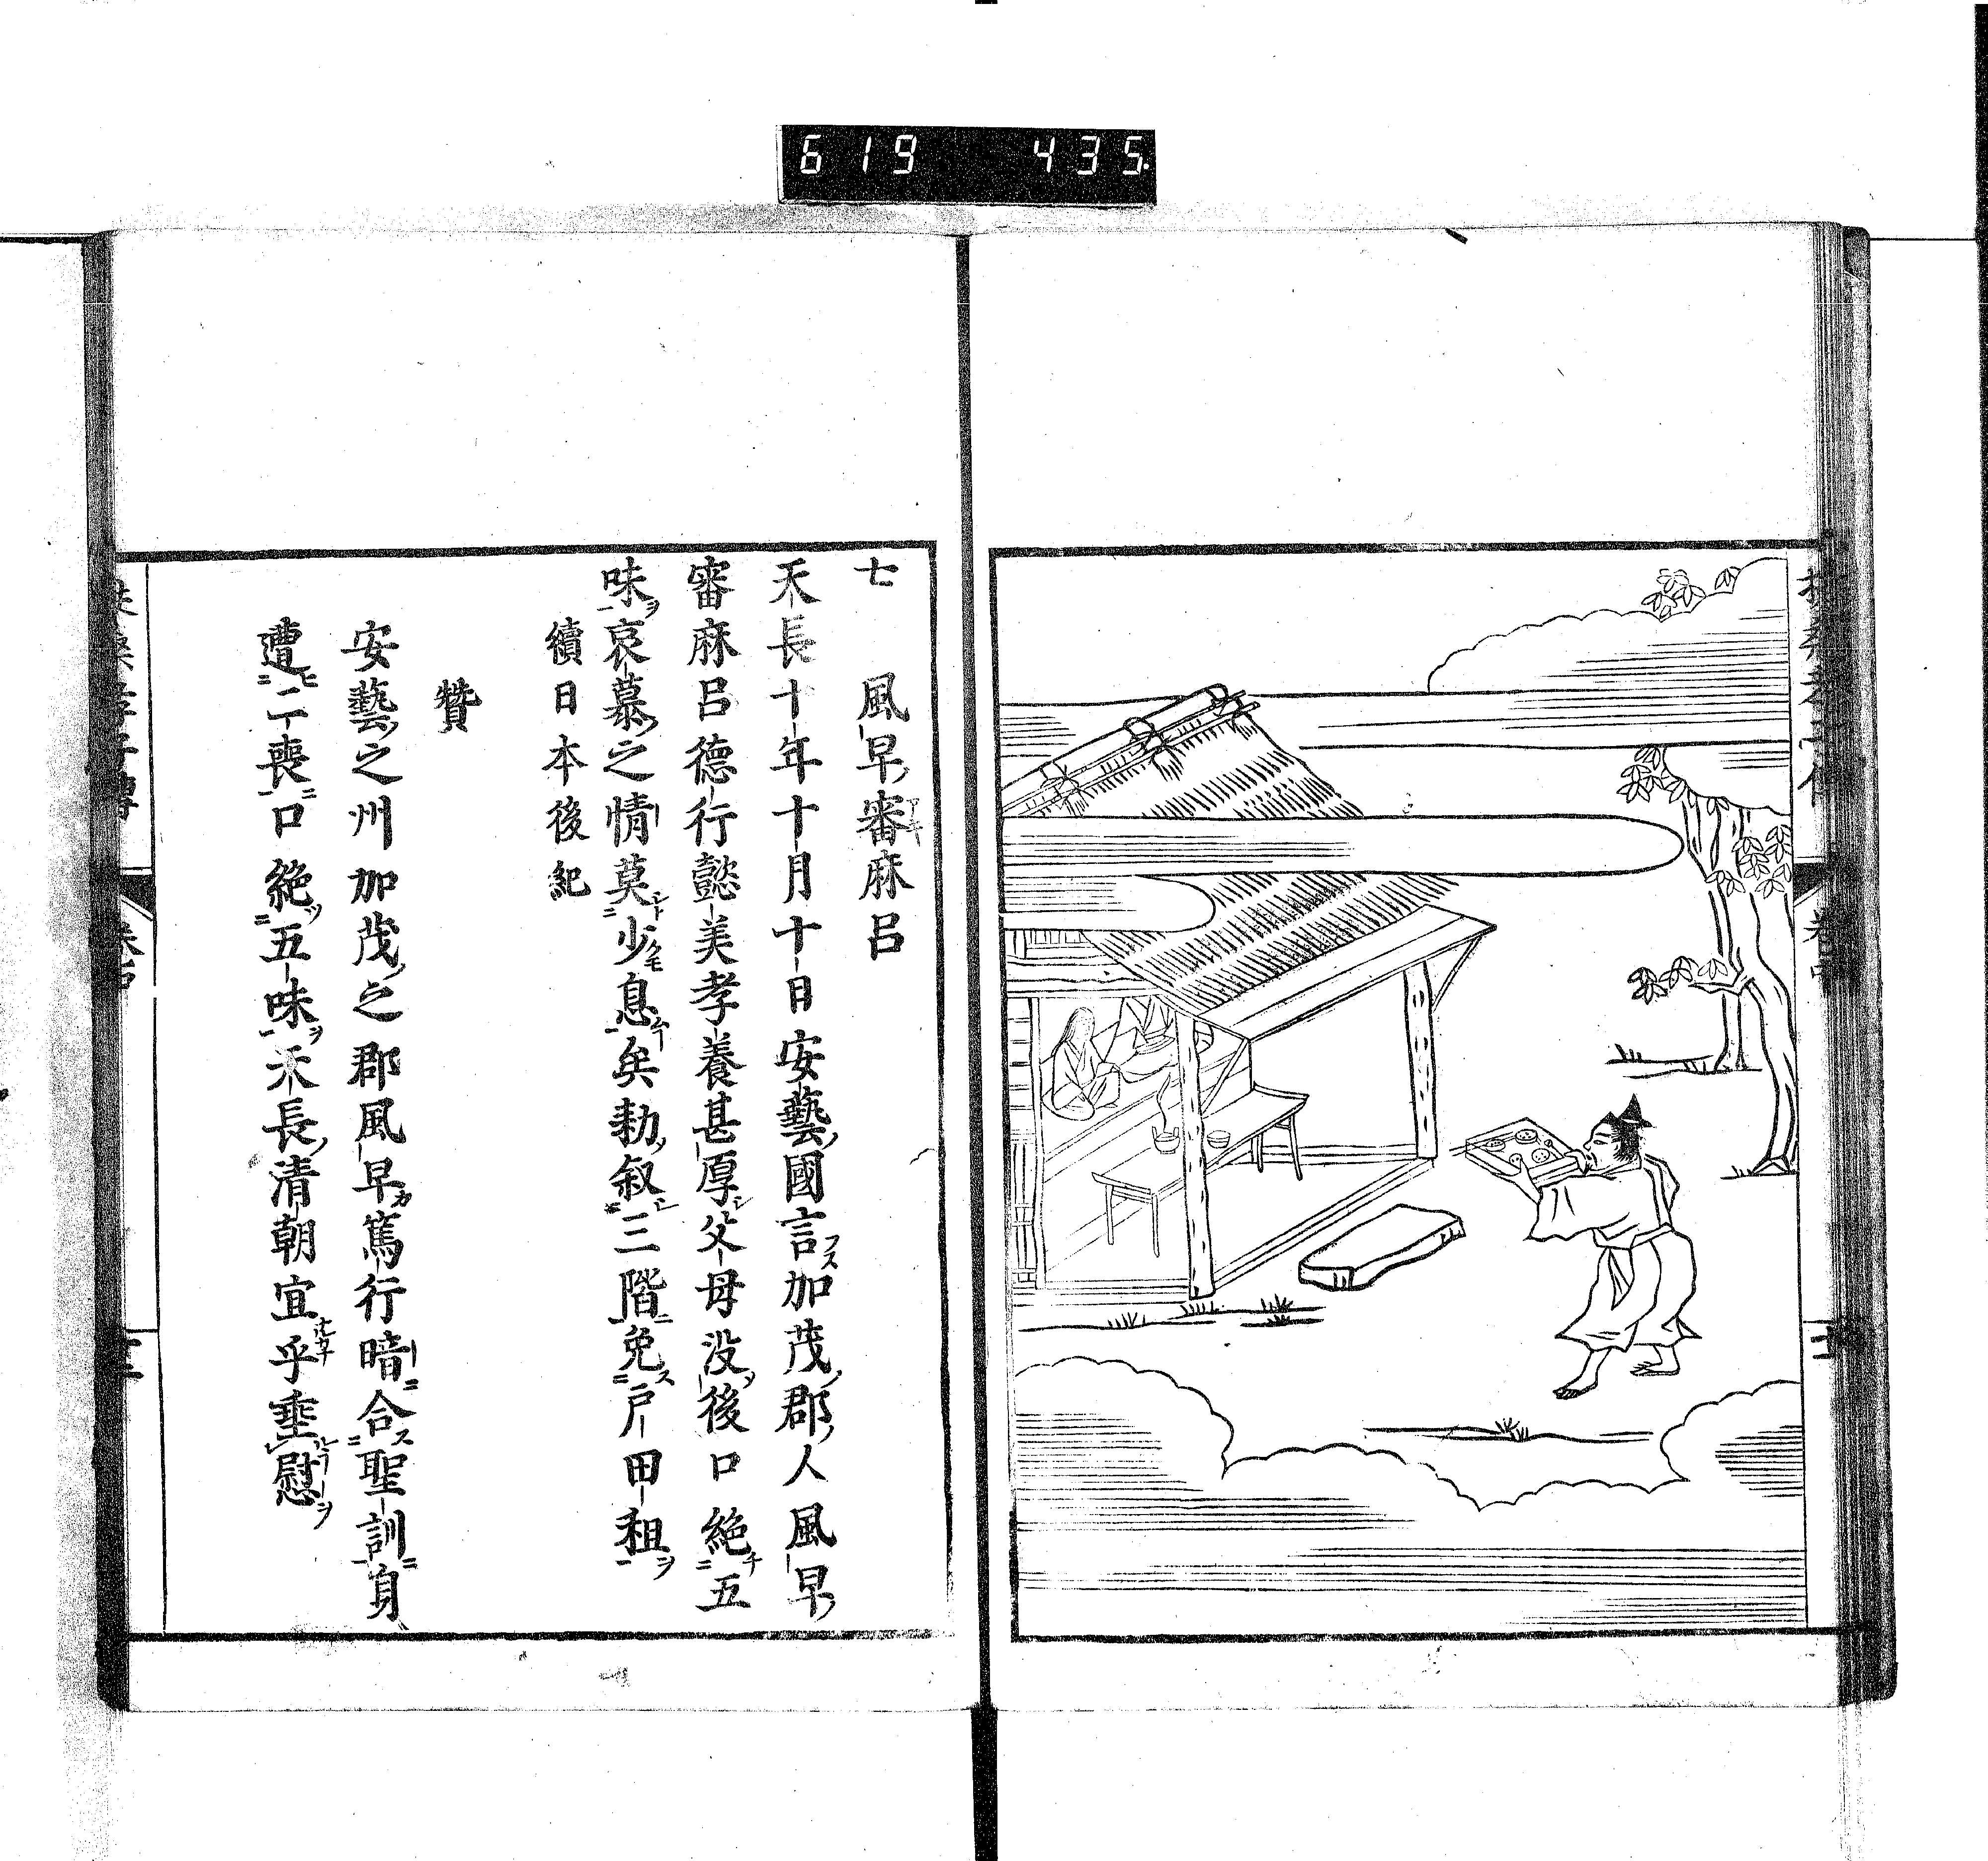 619 435
七 風早審麻呂
天長十年十月十日安藝國言加茂郡人風早
審麻呂德行懿美孝養甚厚父母没後口絶五
味哀慕之情莫少息矣勑叙三階免戸田租
續日本後紀
贊
安藝之州加茂之郡風早篤行暗合聖訓身
遭二喪口絶五味天長清朝宜乎垂慰